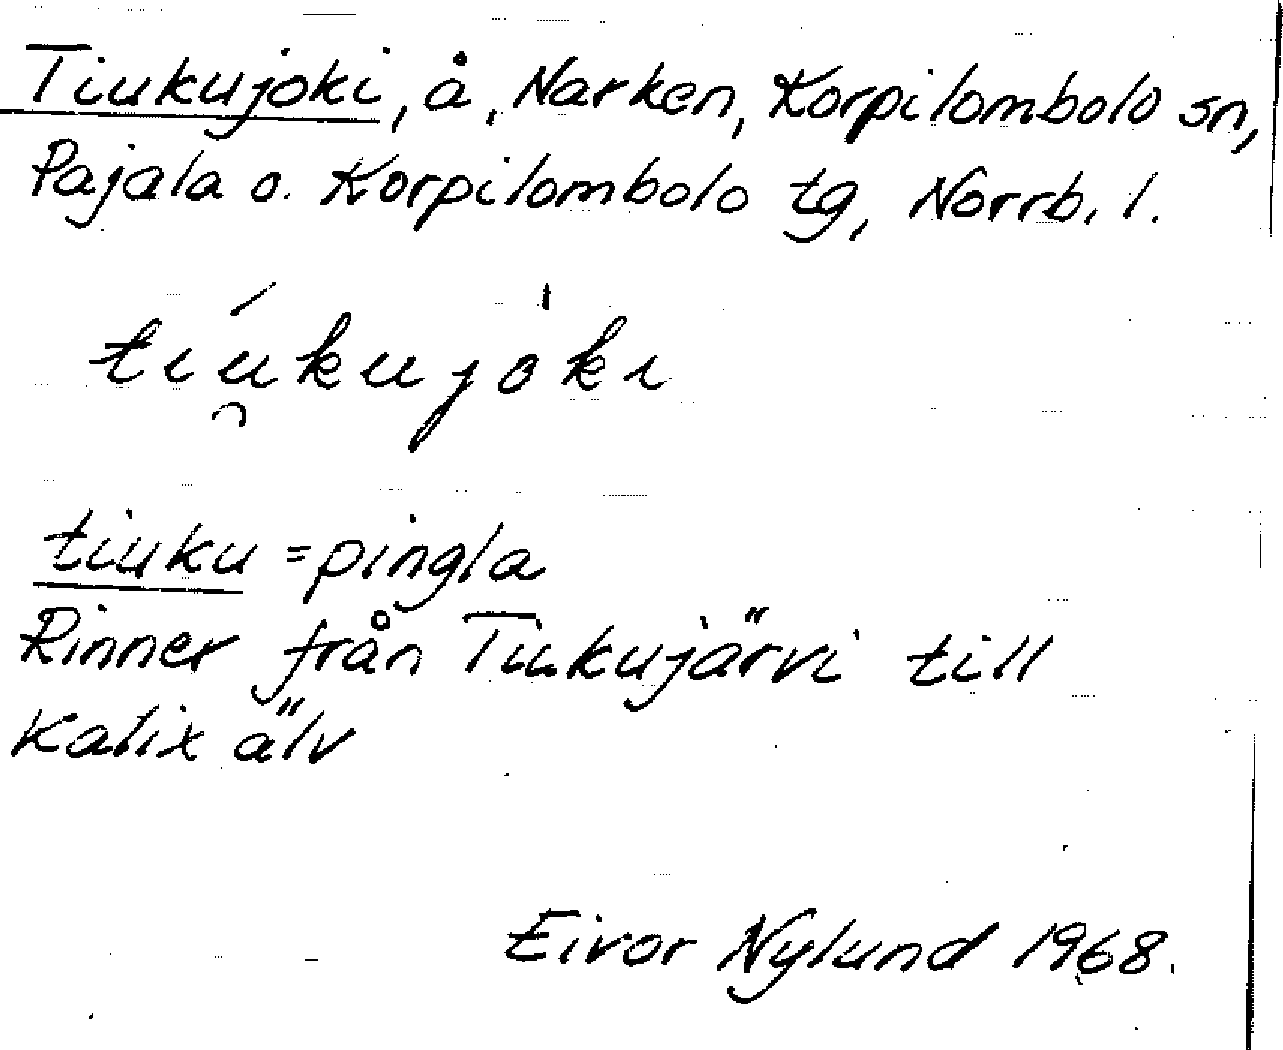 Tiukujoki, å, Narken, Korpilombolo sn,
Pajala o. Korpilombolo tg, Norrb. l.
tíu̯kujòki
tiuku = pingla
Rinner från Tiukujärvi till
Kalix älv
Eivor Nylund 1968.